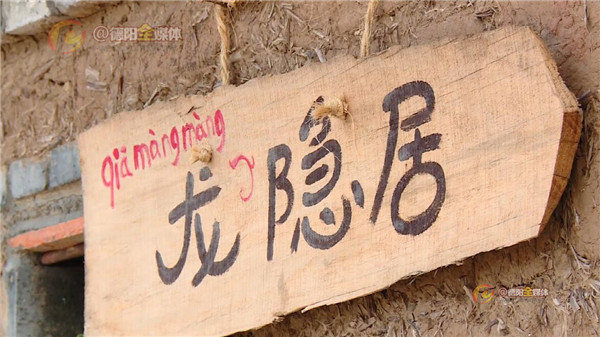 @德阳全媒体
qiā màng màng
龙隐居
@德阳全媒体